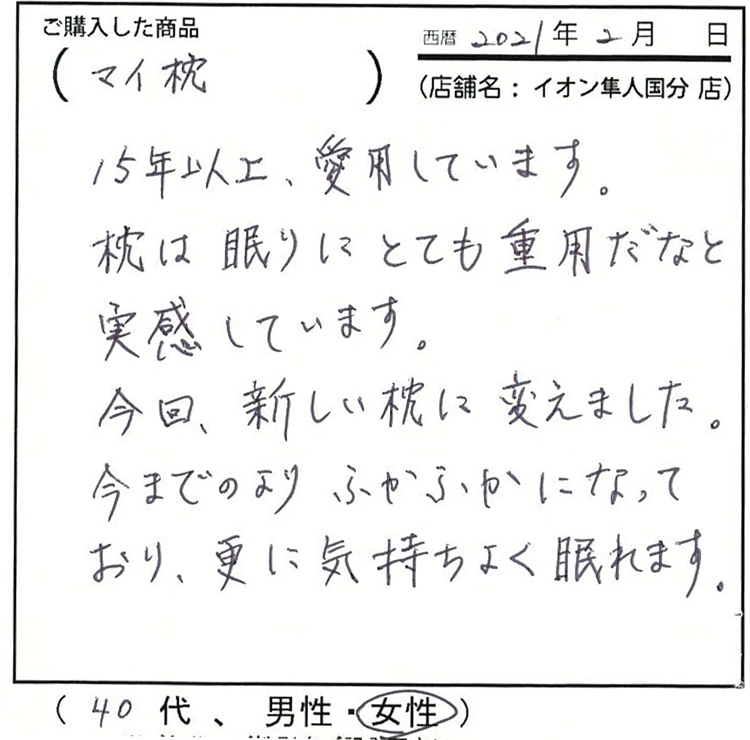 ご購入した商品
西暦 2021年2月 日
(マイ枕)
(店舗名：イオン隼人国分 店)
15年以上、愛用しています。
枕は眠りにとても重用だなと
実感しています。
今回、新しい枕に変えました。
今までのより ふかふかになって
おり、更に気持ちよく眠れます。
(40代、男性・女性)